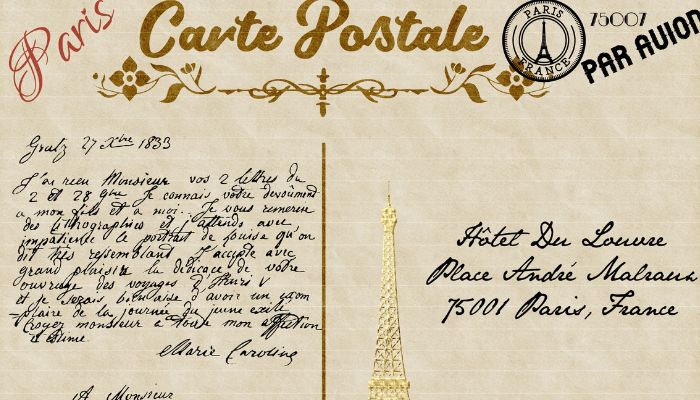 Paris
Carte Postale
PARIS
FRANCE
75007
PAR AVION
Gratz 27 Xbre 1833
J'ai reçu Monsieur vos 2 lettres du
2 et 28 9bre Je connais votre dévoument
a mon fils et a moi. Je vous remercie
des lithographies et j'attends avec
impatience le portrait de Louise qu'on
dit très ressemblant J'accepte avec
grand plaisir la dédicace de votre
ouvrage des voyages d'Henri V
et je serais bien aise d'avoir un exem
-plaire de la journée du jeune exilé
Croyez monsieur a toute mon affection
et estime.
Marie Caroline
A Monsieur
Hôtel Du Louvre
Place André Malraux
75001 Paris, France